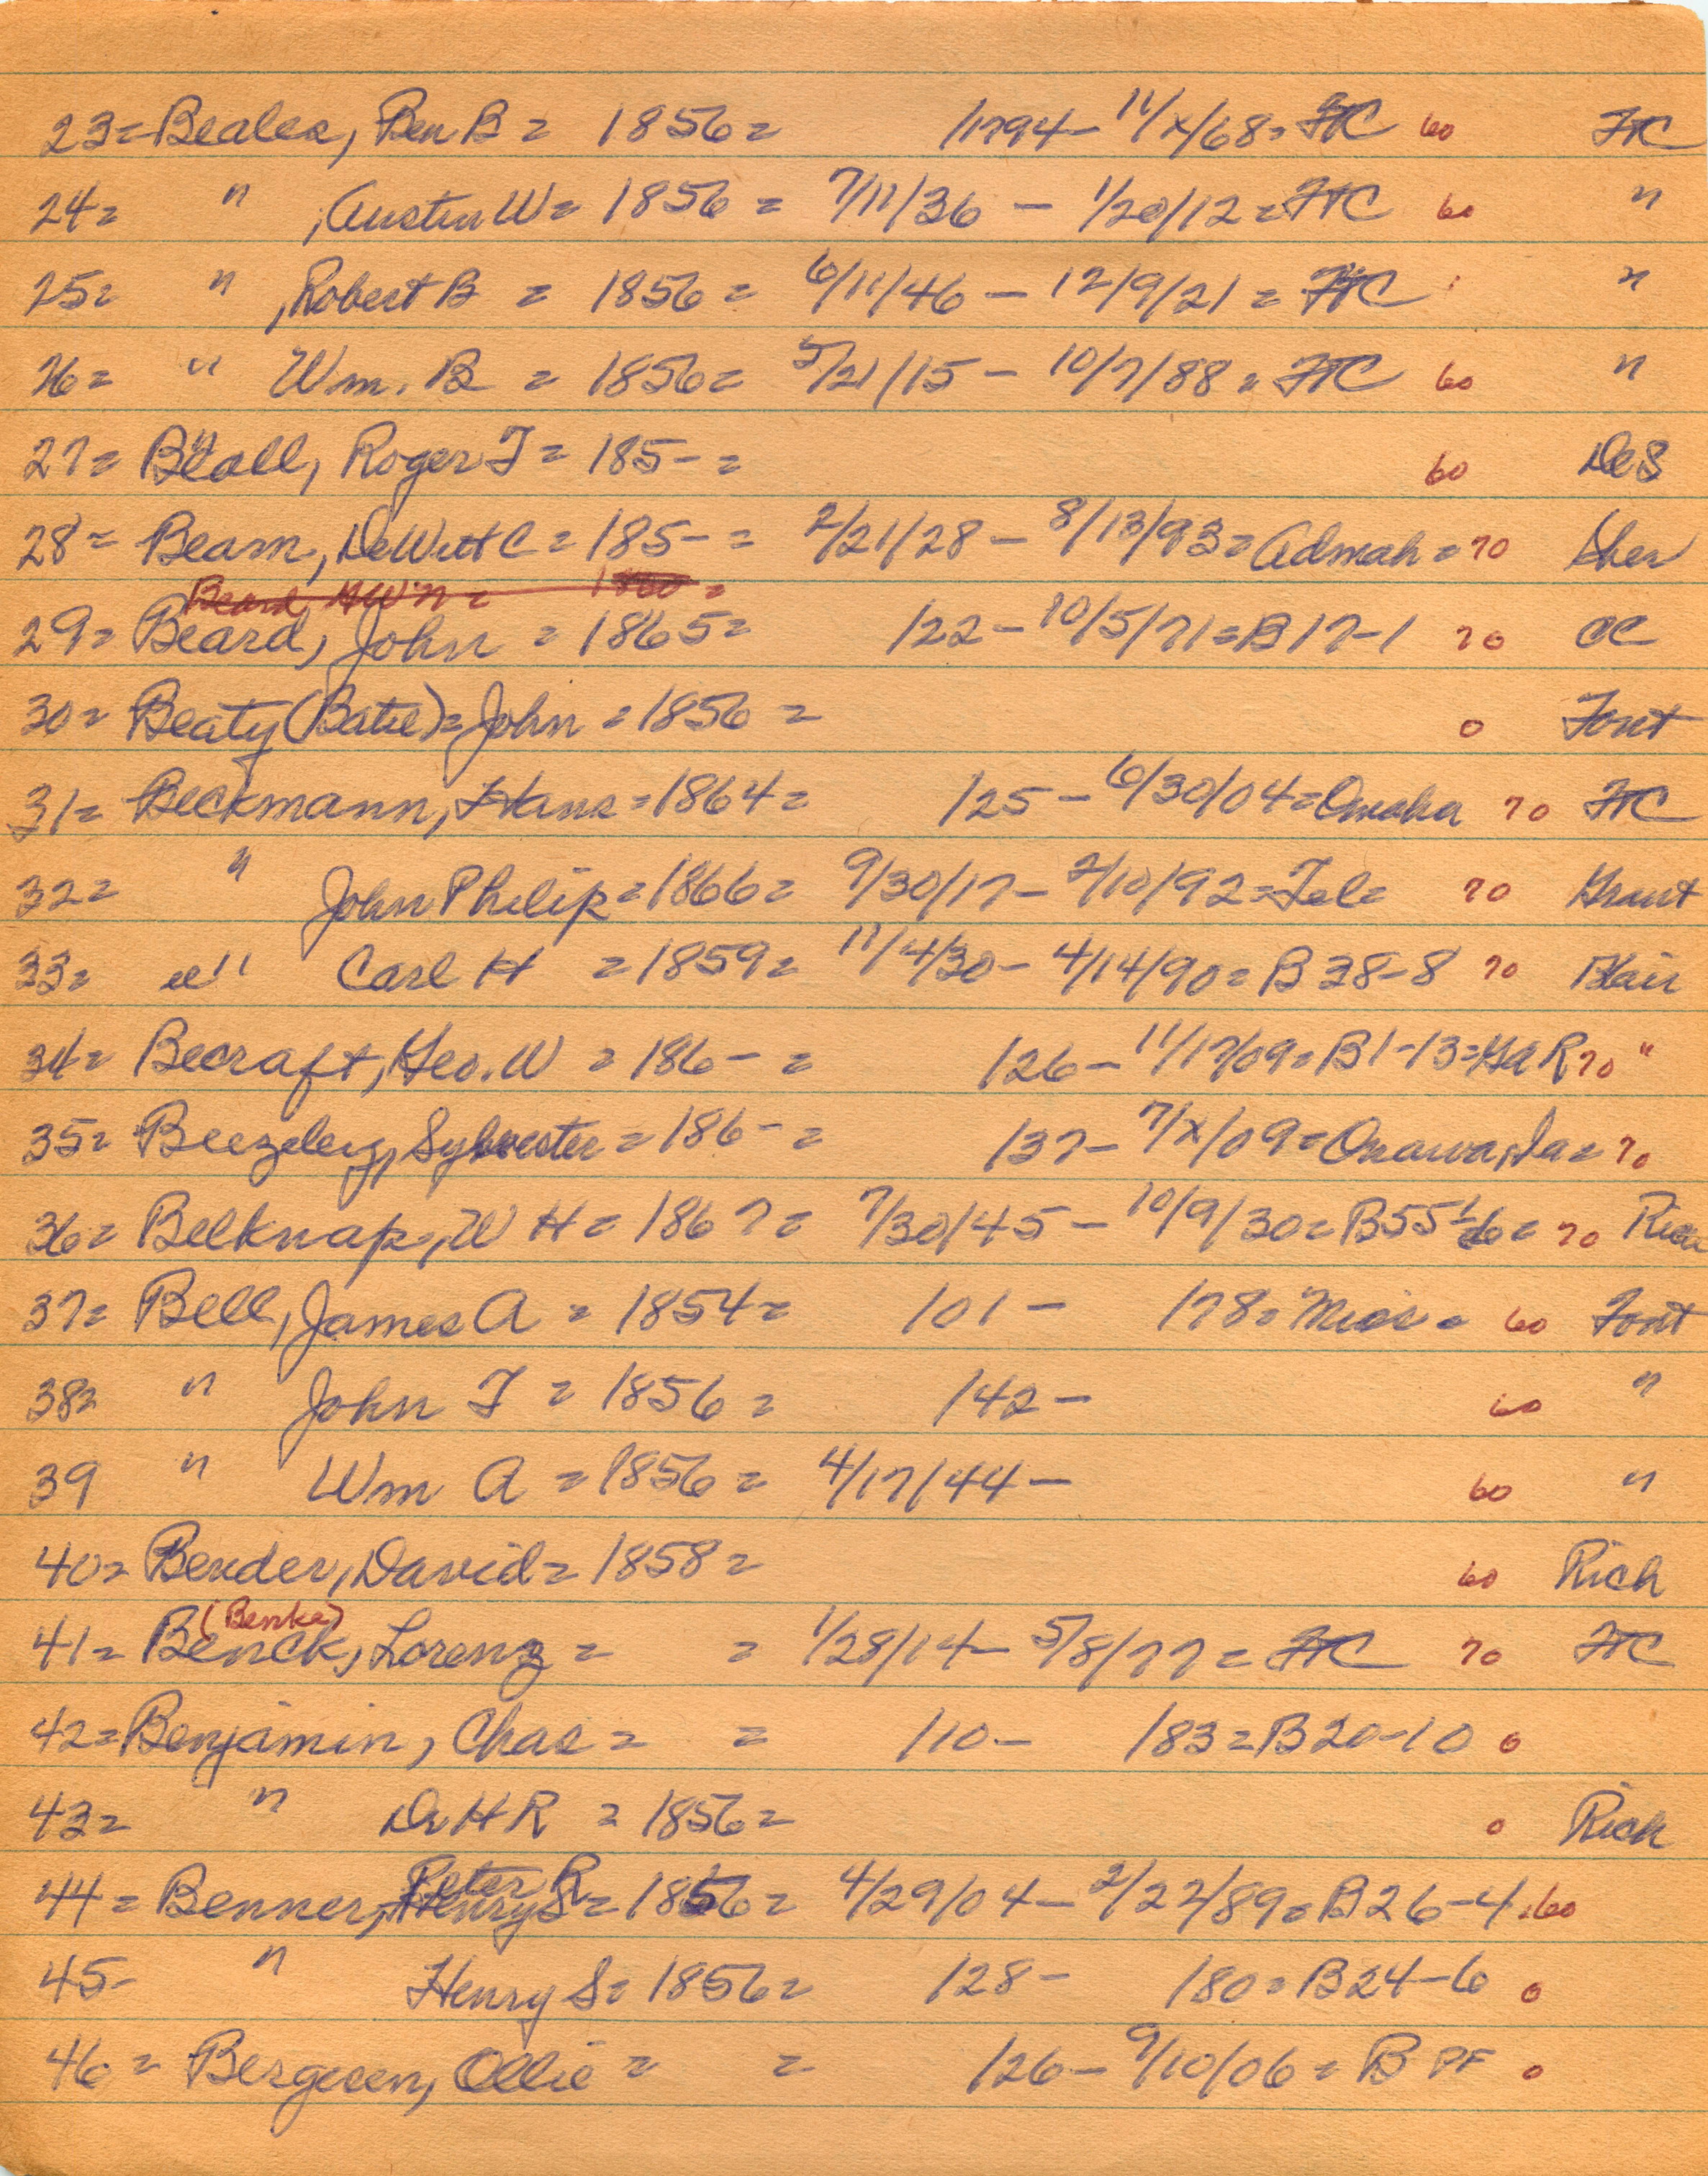 23= Beales, Ben B = 1856= /1794- 11/x/68= FTC 60 FTC
24= " , Austin W= 1856 = 7/11/36 - 1/20/12 = FTC 60 "
25= " , Robert B = 1856 = 6/11/46 - 12/9/21 = FTC "
26= " Wm. B = 1856= 5/21/15 - 10/7/88 = FTC 60 "
27= Beall, Roger T= 185- = 60 DeS
28= Beam, DeWitt C = 185- = 2/21/28 - 8/13/93= Admah = 70 Sher
Beard =
29= Beard, John = 1865= /22 - 10/5/71= B17-1 70 CC
30= Beaty (Batie)= John = 1856 = 0 Font
31= Beckmann, Hans = 1864= /25 - 6/30/04= Omaha 70 FTC
32= " John Philip = 1866= 9/30/17- 2/10/92= Tel= 70 Grant
33= " Carl H = 1859= 11/4/30- 4/14/90= B 38-8 70 Blair
34= Becraft, Geo. W = 186- = /26- 11/17/09= B1-13= GAR 70 "
35= Beezeley, Sylvester = 186- = /37- 7/x/09= Onawa, Ia = 70
36= Belknap, W H = 1867= 7/30/45 - 10/9/30= B55-6= 70
37= Bell, James A = 1854= /01 - /78= = 60 Font
38= " John T = 1856 = /42 - 60 "
39 " Wm A = 1856 = 4/17/44 - 60 "
40= Bender, David = 1858= 60 Rich
(Benke)
41= Benck, Lorenz = = 1/28/14- 5/8/77 = FTC 70 FTC
42= Benjamin, Chas = = /10- /83 = B20-10 0
43= " Dr H R = 1856= 0 Rich
Peter R
44= Benner, Henry S = 1856= 4/29/04- 2/22/89= B26-4 60
45- " Henry S= 1856= /28- /80= B24-6 0
46= Bergesen, Ollie = = /26- 9/10/06= B PF 0